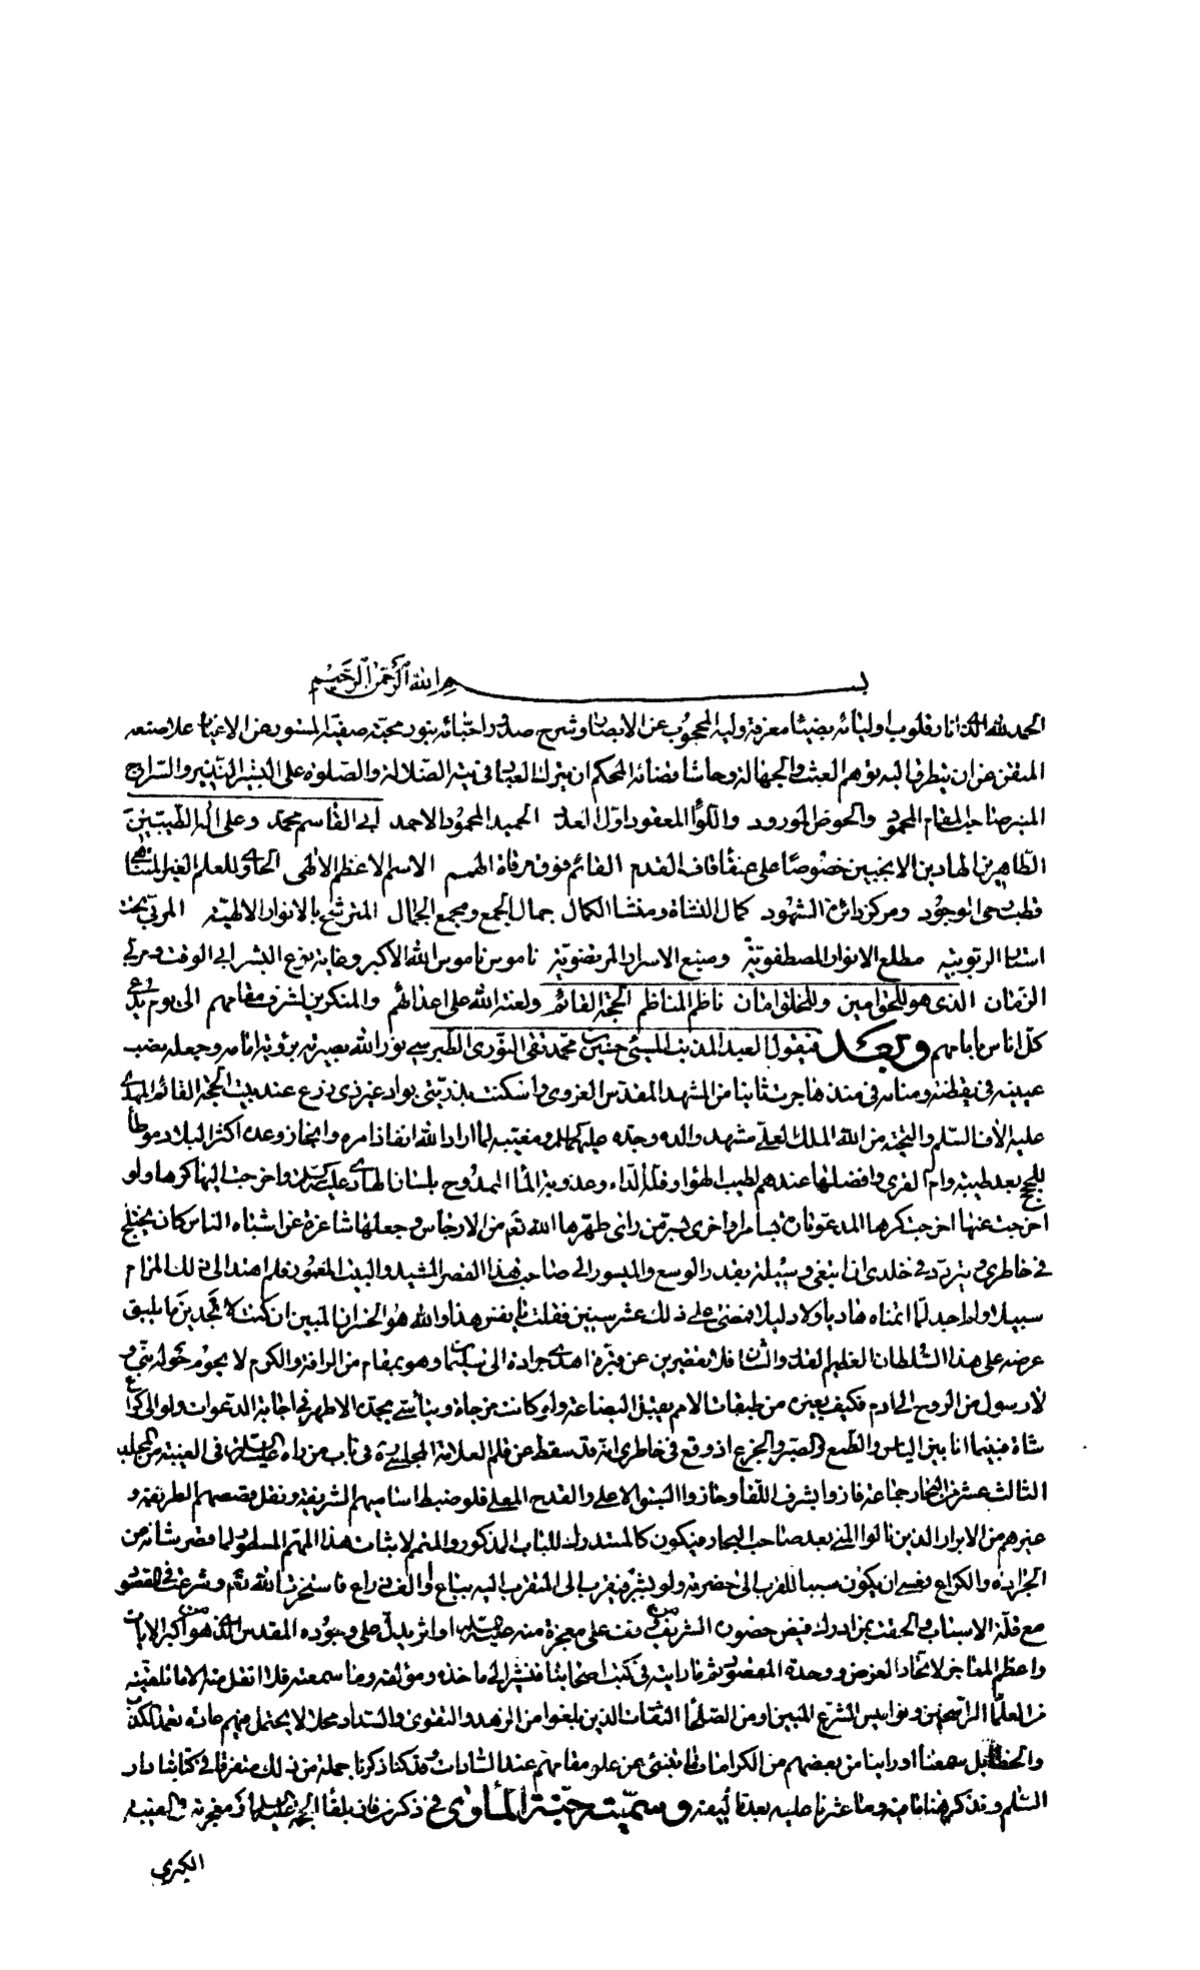 بسم الله الرحمن الرحيم
الحمد لله الذى انار قلوب اوليائه بضياء معرفة وليه المحجوب عن الابصار وشرح صدور احبائه بنور محبة صفيه المستور عن الاغيار علا صنعه
المتقن عن ان يتطرق اليه توهم العبث والجهالة وحاشا قضائه المحكم ان يترك العباد فى تيه الضلالة والصلوة على البشير النذير والسراج
المنير صاحب المقام المحمود والحوض المورود واللواء المعقود اول العدد الحميد المحمود الاحمد ابى القاسم محمد وعلى اله الطيبين
الطاهرين الهادين الانجبين خصوصا على عنقاء قاف القدم القائم فوق مرقاة الهمم الاسم الاعظم الالهى الحاوى للعلم الغير المتناهى
قطب رحى الوجود ومركز دائرة الشهود كمال النشاة ومنشا الكمال جمال الجمع ومجمع الجمال المترشح بالانوار الالهية المربى تحت
استار الربوبية مطلع الانوار المصطفوية ومنبع الاسرار المرتضوية ناموس ناموس الله الاكبر وغاية نوع البشر ابى الوقت ومربى
الزمان الذى هو للحق امين وللخلق امان ناظم المناظم الحجة القائم ولعنة الله على اعدائهم والمنكرين لشرف مقامهم الى يوم يدعى
كل اناس بامامهم وبعد فيقول العبد المذنب المسيئ حسين بن محمد تقى النورى الطبرسى نور الله بصيرته برؤية امامه وجعله نصب
عينيه فى يقظته ومنامه انى منذ هاجرت ثانيا من المشهد المقدس الغروى واسكنت بذريتى بواد غير ذى زرع عند بيت الحجة القائم المهدى
عليه الاف السلم والتحية من الله الملك العلى مشهد والده وجده عليهما السلام ومغيبه لما اراد الله انفاذ امره وانجاز وعده اكثر البلاد موطأ
للحجج بعد طيبة وام القرى وافضلها عندهم لطيب الهواء وقلة الداء وعذوبة الماء الممدوح بلسان الهادى عليه السلام واخرجت اليها كرها ولو
اخرجت عنها اخرجت كرها المدعو تارة بسامراء واخرى بسر من راى طهرها الله تعم من الارجاس وجعلها شاغرة عن اشباه الناس كان يختلج
فى خاطرى ويتردد فى خلدى ان ابتغى وسيلة بقدر الوسع والميسور الى صاحب هذا القصر المشيد والبيت المعمور فلم اهتد الى ذلك المرام
سبيلا ولم اجد لما اتمناه هاديا ولا دليلا فمضى على ذلك عشر سنين فقلت يا نفس هذا والله هو الخسران المبين ان كنت لا تجدين ما يليق
عرضه على هذا السلطان العظيم القدر والشان فلا تقصرين عن قبرة اهدت جرادة الى سليمان وهو بمقام من الرافة والكرم لا يحوم حوله نبى و
لا رسول من الروح الى ادم فكيف بغيره من طبقات الامم يقبل البضاعة ولو كانت مزجاة ويتأسى بجده الاطهر فى اجابة الدعوات ولو الى كراع
شاة فبينما انا بين الياس والطمع والصبر والجزع اذ وقع فى خاطرى انه قد سقط عن قلم العلامة المجلسى ره فى باب من راه عليه السلام فى الغيبة من المجلد
الثالث عشر من البحار جماعة فازوا بشرف اللقاء وحازوا السبق الاعلى والقدح المعلى فلو ضبط اساميهم الشريفة ونقل قصصهم الطريفة و
غيرهم من الابرار الذين نالوا المنى بعد صاحب البحار فيكون كالمستدرك للباب المذكور والمتمم لاثبات هذا المهم المسطور لما قصر شانه من
الجرادة والكراع فعسى ان يكون سببا للقرب الى حضرته ولو بشبر فيقرب الى المتقرب اليه بباع والف ذراع فاستخرت الله تعم وشرعت فى المقصود
مع قلة الاسباب والحقت بمن ادرك فيض حضوره الشريف من وقف على معجزة منه عليه السلام او اثر يدل على وجوده المقدس الذى هو من اكبر الايات
واعظم المعاجز لاتحاد الغرض ووحدة المقصود ثم ما رايته فى كتب اصحابنا فنشير الى ماخذه ومؤلفه وما سمعته فلا انقل منه الا ما تلقيته
من العلماء الراسخين ونواميس الشرع المبين او من الصلحاء الثقات الذين بلغوا من الزهد والتقوى والسداد محلا لا يحتمل فيهم عادة تعمد الكذب
والخطاء بل سمعنا او راينا من بعضهم من الكرامات ما تنبئ عن علو مقامهم عند السادات وقد كنا ذكرنا جملة من ذلك متفرقا فى كتابنا دار
السلم ونذكر هنا ما فيه وما عثرنا عليه بعد تاليفه وسميته جنة المأوى فى ذكر من فاز بلقاء الحجة عليه السلام او معجزته فى الغيبة
الكبرى